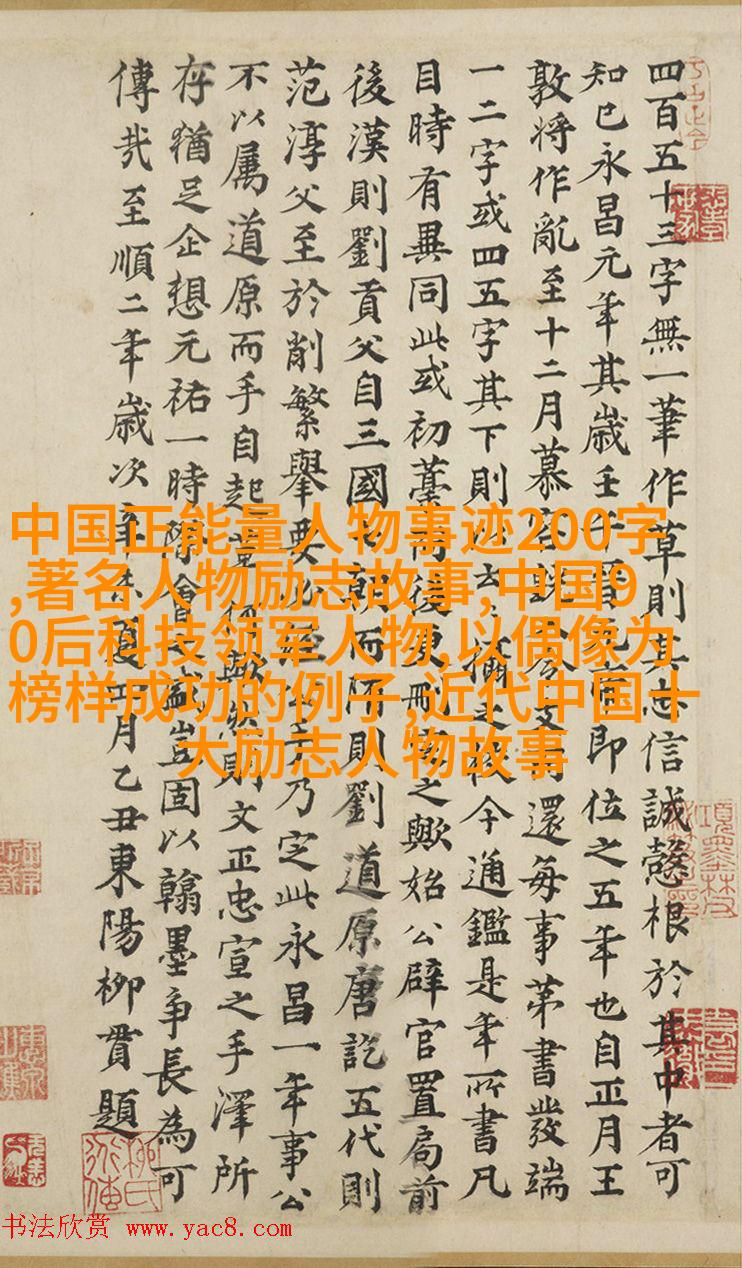 四百五十三字無一筆作草則其忠信誠慤根於其中者可
知已永昌元年其歲壬午晉元帝即位之五年也自正月王
敦將作亂至十二月慕容還每事第書發端
一二字或四五字其下則以云云攝之校今通鑑是年所書凡
目時有異同此或初藁而後更刪定之歟始公辟官置局前
後漢則劉貢父自三國七朝而隋則劉道原唐訖五代則
范淳父至於削繁舉要必經公手乃定此永昌一年事公
不以屬道原而手自起草何歟然則文正忠宣之手澤所
存猶足企想元祐一時際會之盛豈固以翰墨爭長為可
傳哉至順二年歲次辛未夏月乙丑東陽柳貫題
中国正能量人物事迹200字
,著名人物励志故事,中国9
0后科技领军人物,以偶像为
榜样成功的例子,近代中国十
大励志人物故事
书法欣赏 www.yac8.com